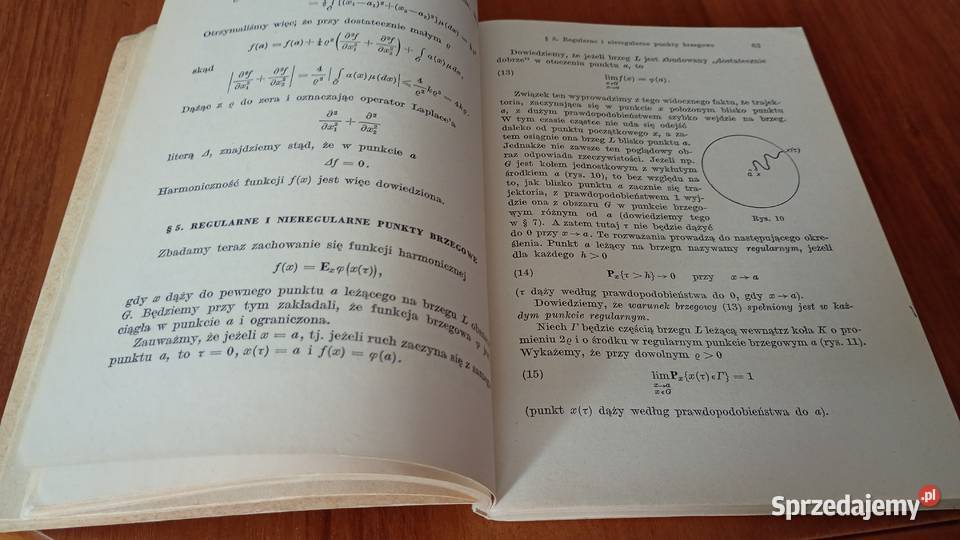 Otrzymaliśmy więc, że przy dostatecznie małym ϱ
f(a) = f(a) + ½ ϱ² (∂²f/∂x₁² + ∂²f/∂x₂²) + ∫ α(x) μ(dx),
skąd
|∂²f/∂x₁² + ∂²f/∂x₂²| = 4/ϱ² |∫ α(x) μ(dx)| ⩽ 4/ϱ² kϱ³ = 4kϱ.
Dążąc z ϱ do zera i oznaczając operator Laplace'a
∂²/∂x₁² + ∂²/∂x₂²
literą Δ, znajdziemy stąd, że w punkcie a
Δf = 0.
Harmoniczność funkcji f(x) jest więc dowiedziona.
§ 5. REGULARNE I NIEREGULARNE PUNKTY BRZEGOWE
Zbadamy teraz zachowanie się funkcji harmonicznej
f(x) = Eₓφ(x(τ)),
gdy x dąży do pewnego punktu a leżącego na brzegu L
G. Będziemy przy tym zakładali, że funkcja brzegowa φ
ciągła w punkcie a i ograniczona.
Zauważmy, że jeżeli x = a, tj. jeżeli ruch zaczyna się z
punktu a, to τ = 0, x(τ) = a i f(x) = φ(a).
§ 5. Regularne i nieregularne punkty brzegowe 63
Dowiedziemy, że jeżeli brzeg L jest zbudowany „dostatecznie
dobrze” w otoczeniu punktu a, to
(13) lim f(x) = φ(a).
x→a
Związek ten wyprowadzimy z tego widocznego faktu, że trajek-
toria, zaczynająca się w punkcie x położonym blisko punktu
a, z dużym prawdopodobieństwem szybko wejdzie na brzeg.
W tym czasie cząstce nie uda się odejść
daleko od punktu początkowego x, a za-
tem osiągnie ona brzeg L blisko punktu a.
Jednakże nie zawsze ten poglądowy ob-
raz odpowiada rzeczywistości. Jeżeli np.
G jest kołem jednostkowym z wykłutym
środkiem a (rys. 10), to bez względu na
to, jak blisko punktu a zacznie się tra-
jektoria, z prawdopodobieństwem 1 wyj-
dzie ona z obszaru G w punkcie brzego-
wym różnym od a (dowiedziemy tego
w § 7). A zatem tutaj τ nie będzie dążyć
x(τ)
a x
Rys. 10
do 0 przy x→a. Te rozważania prowadzą do następującego okre-
ślenia. Punkt a leżący na brzegu nazywamy regularnym, jeżeli
dla każdego h > 0
(14) Pₓ{τ > h} → 0 przy x→a
(τ dąży według prawdopodobieństwa do 0, gdy x→a).
Dowiedziemy, że warunek brzegowy (13) spełniony jest w każ-
dym punkcie regularnym.
Niech Γ będzie częścią brzegu L leżącą wewnątrz koła K o pro-
mieniu 2ϱ i o środku w regularnym punkcie brzegowym a (rys. 11).
Wykażemy, że przy dowolnym ϱ > 0
(15) lim Pₓ{x(τ) ∈ Γ} = 1
x→a
x∈G
(punkt x(τ) dąży według prawdopodobieństwa do a).
Sprzedajemy.pl